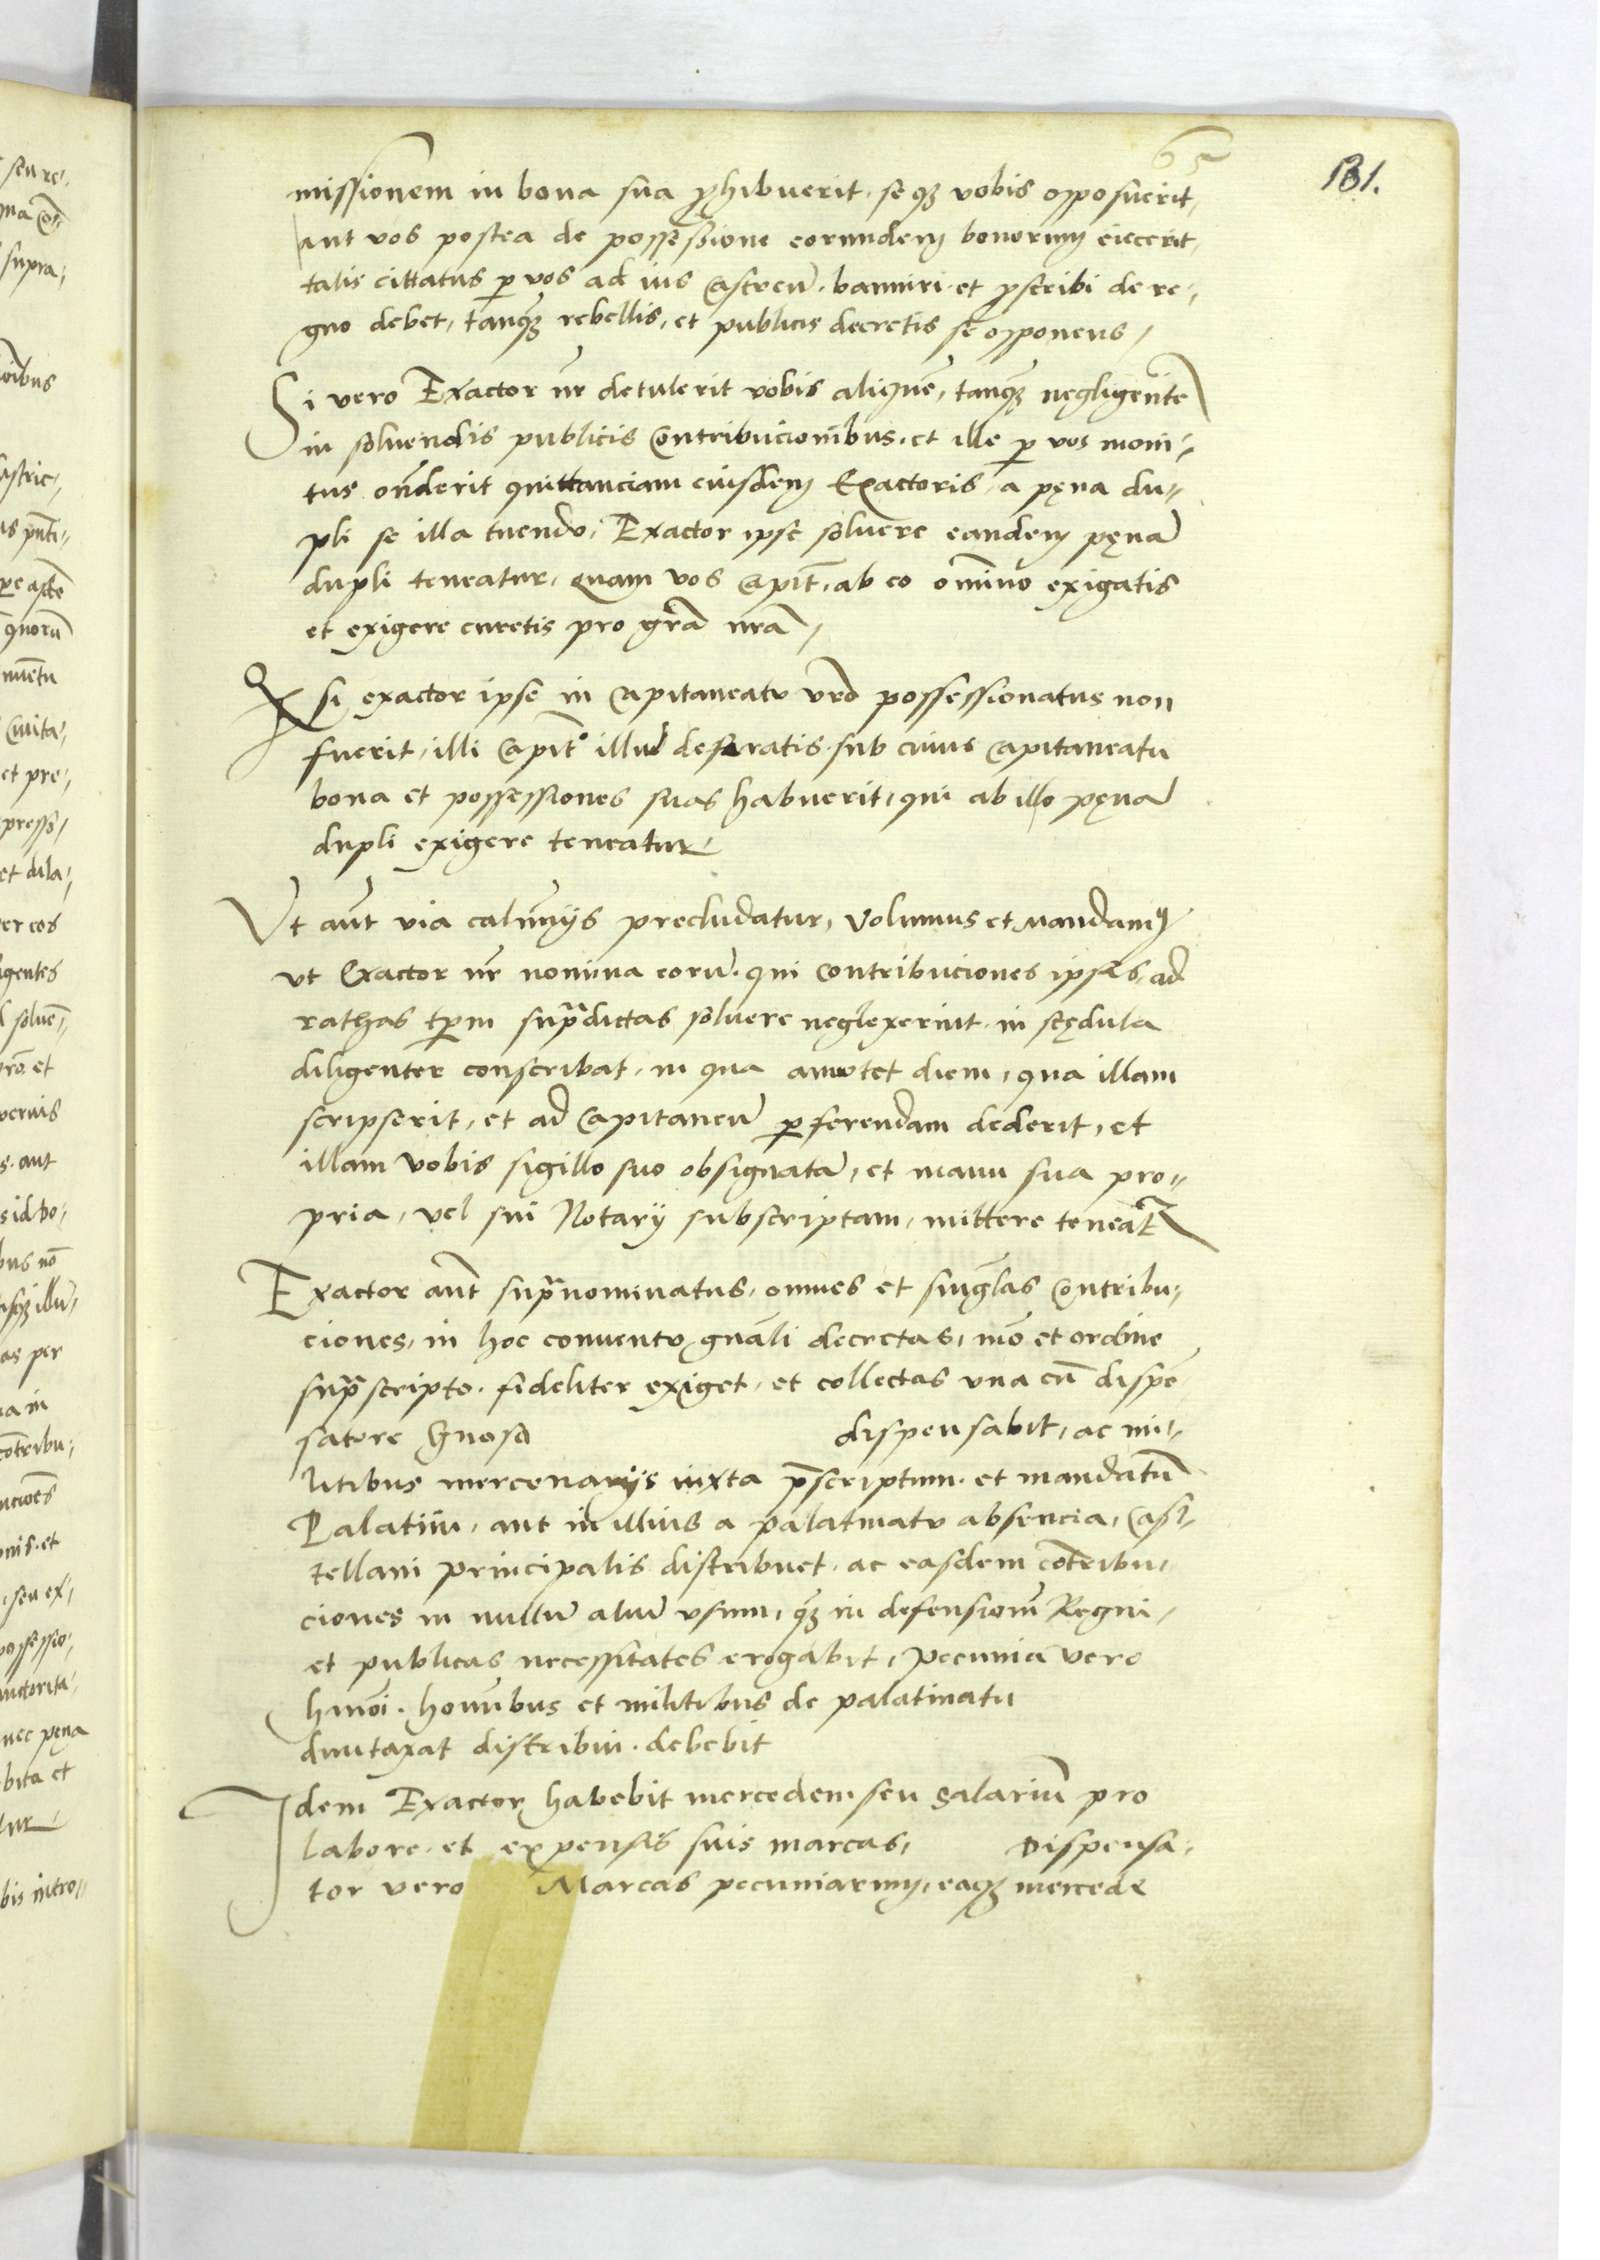 65
131.
missionem in bona sua prohibuerit, seqȝ vobis opposuerit,
aut vos postea de possessione eorundem bonorum eiecerit,
talis cittatus p vos ad ius Castreū, banniri et proscribi de re-
gno debet, tanqȝ rebellis, et publicis decretis se opponens,
Si vero Exactor nr̄ detulerit vobis aliquē, tanqȝ negligentē
in soluendis publicis Contribucionibus, et ille p vos moni-
tus on̄derit quittanciam eiusdem Exactoris, a pęna du-
pli se illa tuendo, Exactor ipse soluere eandem pęnā
dupli teneatur, quam vos Capit̄, ab eo omīno exigatis
et exigere curetis pro gr̄a nr̄a,
si exactor ipse in Capitaneatu vr̄o possessionatus non
fuerit, illi Capit̄o illud deferatis sub cuius Capitaneatu
bona et possessiones suas habuerit, qui ab illo pęnā
dupli exigere teneatur,
Vt aūt via calūnijs precludatur, volumus et mandamȝ
vt Exactor nr̄ nomina eorū, qui contribuciones ipsas, ad
rathas tp̄rm supradictas soluere neglexerint, in scędula
diligenter conscribat, in qua annotet diem, qua illam
scripserit, et ad Capitaneū pferendam dederit, et
illam vobis sigillo suo obsignatā, et manu sua pro-
pria, vel sui Notarij subscriptam, mittere teneat̄
Exactor aūt supranominatus, omnes et singlas Contribu-
ciones, in hoc conuentu gn̄ali decretas, mō et ordine
suprascripto, fideliter exiget, et collectas vna cū dispē
satore Gnoso dispensabit, ac mi-
litibus mercenarijs iuxta p̄scriptum et mandatū
Palatini, aut in illius a palatinatu absencia, Cas-
tellani principalis distribuet, ac easdem cōtribu-
ciones in nullū aliū vsum, qȝ in defensionē Regni,
et publicas necessitates erogabit, Pecunia vero
hmōi, hominibus et militibus de palatinatu
duntaxat distribui debebit
Idem Exactor habebit mercedem seu salariū pro
labore et expensis suis marcas, Dispensa-
tor vero Marcas pecuniarum, eaqȝ mercede